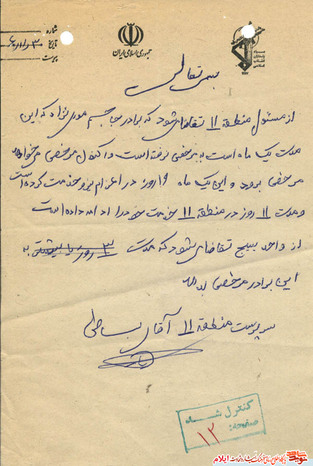 شماره
تاریخ
پیوست
جمهوری اسلامی ایران
بسمه تعالی
از مسئول منطقه ۱۱ تقاضا می‌شود که برادر جاسم که این
مدت یک ماه است به مرخصی نرفته است و اکنون مرخصی می‌خواهد
مرخصی برود و این یک ماه ۱۹ روز در اعزام نیرو خدمت کرده است
و مدت ۱۱ روز در منطقه ۱۱ خدمت خود را ادامه داده است
از واحد بسیج تقاضا می‌شود که مدت ۳ روز به
این برادر مرخصی بدهد
سرپرست منطقه ۱۱ آقای
کنترل شد
صفحه:
۱۲